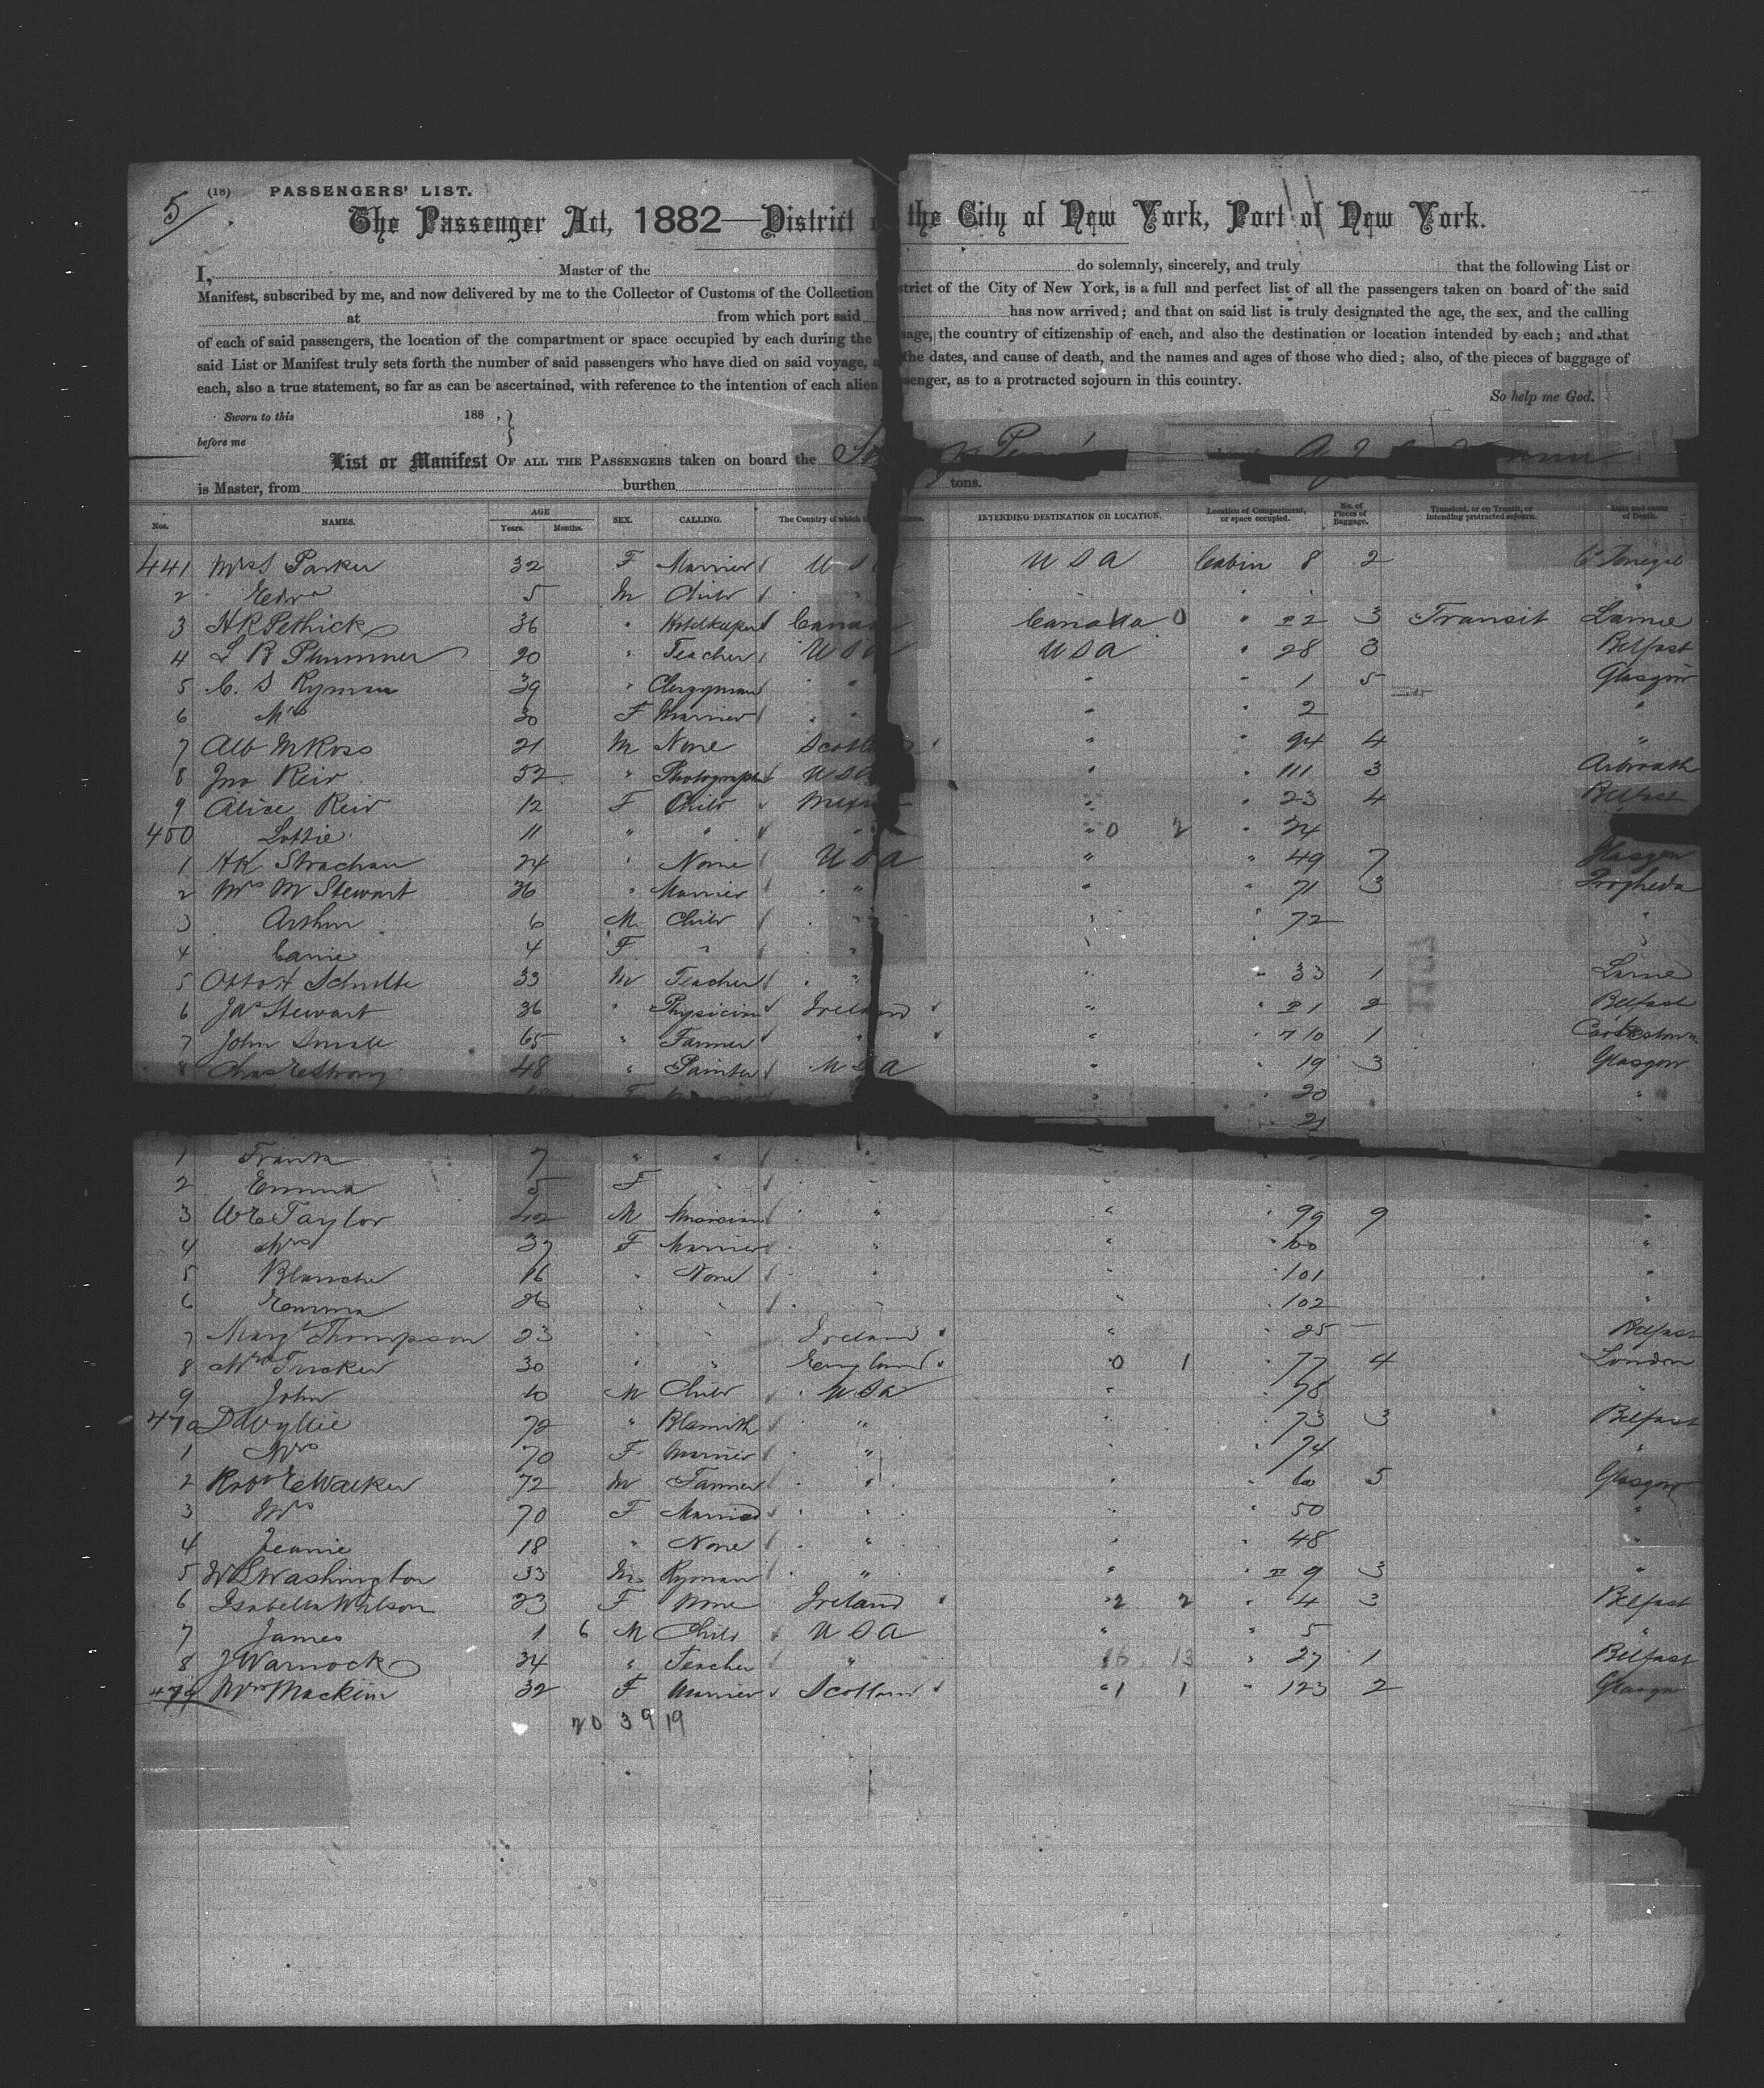 5 (18) PASSENGERS' LIST.
The Passenger Act, 1882—District the City of New York, Port of New York.
I, Master of the do solemnly, sincerely, and truly that the following List or
Manifest, subscribed by me, and now delivered by me to the Collector of Customs of the Collection strict of the City of New York, is a full and perfect list of all the passengers taken on board of the said
at from which port said has now arrived; and that on said list is truly designated the age, the sex, and the calling
of each of said passengers, the location of the compartment or space occupied by each during the sage, the country of citizenship of each, and also the destination or location intended by each; and that
said List or Manifest truly sets forth the number of said passengers who have died on said voyage, a the dates, and cause of death, and the names and ages of those who died; also, of the pieces of baggage of
each, also a true statement, so far as can be ascertained, with reference to the intention of each alien senger, as to a protracted sojourn in this country.
So help me God.
Sworn to this 188 .
before me
List or Manifest OF ALL THE PASSENGERS taken on board the
is Master, from burthen tons.
Nos. NAMES. AGE Years. Months. SEX. CALLING. The Country of which INTENDING DESTINATION OR LOCATION. Location of Compartment, or space occupied. No. of Pieces of Baggage. Transient, or on Transit, or intending protracted sojourn. Date and cause of Death.
441 Mrs S Parker 32 F Married U S U S A Cabin 8 2 Donegal
2 Edwd 5 M Child " " "
3 H R Pethick 36 " Hotelkeeper Canad Canada 0 " 22 3 Transit Larne
4 L B Plummer 20 " Teacher U S A U S A " 28 3 Belfast
5 C. S Ryman 39 " Clergyman " " " 1 5 Glasgow
6 Mrs 30 F Married " " " 2 "
7 Alb M Ross 21 M None Scotl " " 94 4 "
8 Jno Reid 52 " Photograph U S A " " 111 3 Arbroath
9 Alice Reid 12 F Child Mexi " " 23 4 Belfast
450 Lottie 11 " " " " 0 2 " 24
1 H K Strachan 24 " None U S A " " 49 7 Glasgow
2 Mrs M Stewart 36 " Married " " " 71 3 Drogheda
3 Arthur 6 M Child " " " 72 "
4 Carrie 4 F " " " "
5 Otto H Schulte 33 M Teacher " " " 33 1 Larne
6 Jas Stewart 36 " Physician Ireland " " 21 2 Belfast
7 John Small 65 " Farmer " " " 710 1
8 Chas E Strong 48 " Painter U S A " " 19 3 Glasgow
" 20 "
21
1 Frank 7 " " " "
2 Emma 5 F " " "
3 W E Taylor 42 M Musician " " " 99 9 "
4 Mrs 37 F Married " " " 100 "
5 Blanche 16 " None " " " 101 "
6 Emma 26 " " " " " 102 "
7 Margt Thompson 23 " " Ireland " " 25 – Belfast
8 Mrs Tucker 30 " " England " 0 1 " 77 4 London
9 John 10 M Child U S A " " 78 "
470 D Wyllie 72 " Blsmith " " " 73 3 Belfast
1 Mrs 70 F Married " " " 74 "
2 Robt E Walker 72 M Farmer " " " 60 5 Glasgow
3 Mrs 70 F Married " " " 50 "
4 Jeanie 18 " None " " " 48 "
5 W L Washington 33 M Ryman " " " 9 3 "
6 Isabella Wilson 23 F None Ireland " 2 2 " 4 3 Belfast
7 James 1 6 M Child U S A " " 5 "
8 J Warnock 34 " Teacher " 16 13 " 27 1 Belfast
479 Mrs Mackim 32 F Married Scotland " 1 1 " 123 2 Glasgow
20 3 9 19